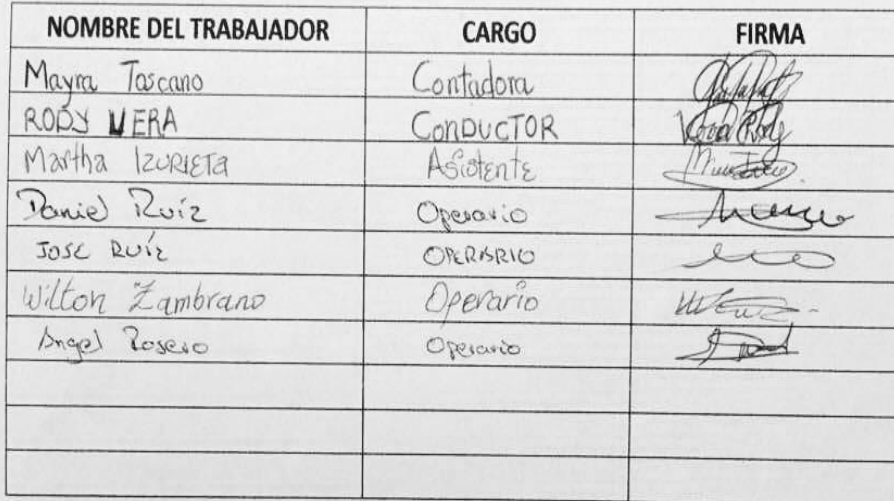 NOMBRE DEL TRABAJADOR CARGO FIRMA
Mayra Toscano Contadora
RODY VERA CONDUCTOR Vera Rody
Martha IZURIETA Asistente
Daniel Ruíz Operario
JOSE RUÍZ OPERARIO
Wilton Zambrano Operario
Angel Rosero Operario